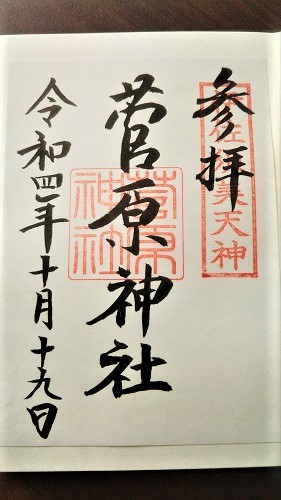 参拝
菅原神社
令和四年十月十九日
菅原
神社
天神